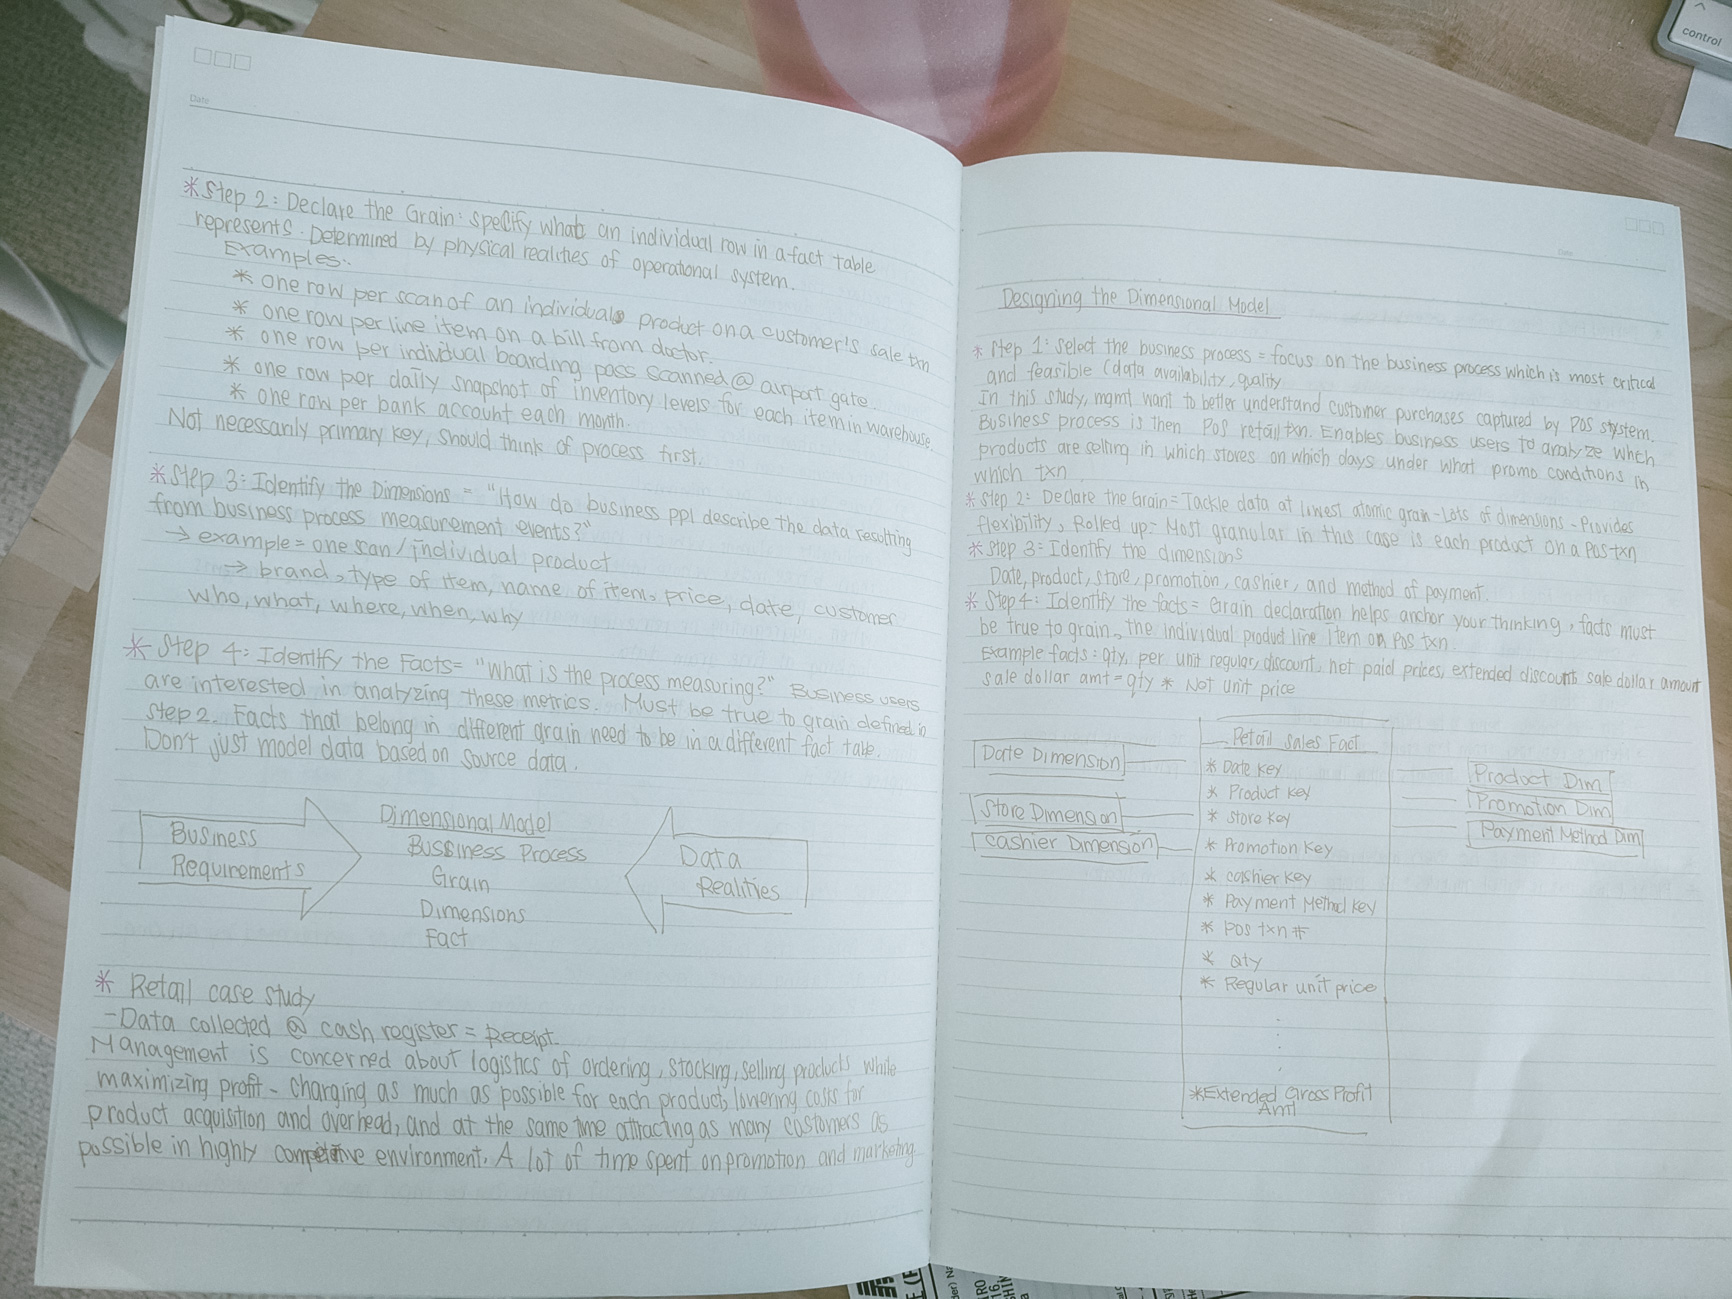 Date
*Step 2: Declare the Grain: specify what an individual row in a fact table
represents. Determined by physical realities of operational system.
Examples:
* one row per scan of an individual product on a customer's sale txn
* one row per line item on a bill from doctor.
* one row per individual boarding pass scanned @ airport gate
* one row per daily snapshot of inventory levels for each item in warehouse.
* one row per bank account each month.
Not necessarily primary key, should think of process first.
*Step 3: Identify the Dimensions = "How do business ppl describe the data resulting
from business process measurement events?"
→ example = one scan/individual product
→ brand, type of item, name of item, price, date, customer
who, what, where, when, why
* Step 4: Identify the Facts = "What is the process measuring?" Business users
are interested in analyzing these metrics. Must be true to grain defined in
step 2. Facts that belong in different grain need to be in a different fact table.
Don't just model data based on source data.
Business
Requirements
Dimensional Model
Bussiness Process
Grain
Dimensions
Fact
Data
Realities
* Retail case study
-Data collected @ cash register = Receipt.
Management is concerned about logistics of ordering, stocking, selling products while
maximizing profit - charging as much as possible for each product, lowering costs for
product acquisition and overhead, and at the same time attracting as many customers as
possible in highly competitive environment. A lot of time spent on promotion and marketing
Date
Designing the Dimensional Model
* Step 1: Select the business process = focus on the business process which is most critical
and feasible (data availability, quality
In this study, mgmt want to better understand customer purchases captured by POS system.
Business process is then POS retail txn. Enables business users to analyze which
products are selling in which stores on which days under what promo conditions in
which txn
* Step 2: Declare the Grain = Tackle data at lowest atomic grain - Lots of dimensions - Provides
flexibility, Rolled up = Most granular in this case is each product on a POS txn
* Step 3: Identify the dimensions
Date, product, store, promotion, cashier, and method of payment.
* Step 4: Identify the facts = Grain declaration helps anchor your thinking, facts must
be true to grain, the individual product line item on POS txn.
Example facts: qty, per unit regular, discount, net paid prices, extended discount sale dollar amount
sale dollar amt = qty * Not unit price
Date Dimension
Store Dimension
Cashier Dimension
Retail Sales Fact
* Date Key
* Product Key
* Store Key
* Promotion Key
* Cashier Key
* Payment Method Key
* POS txn #
* Qty
* Regular unit price
*Extended Gross Profit
Amt
Product Dim
Promotion Dim
Payment Method Dim
control